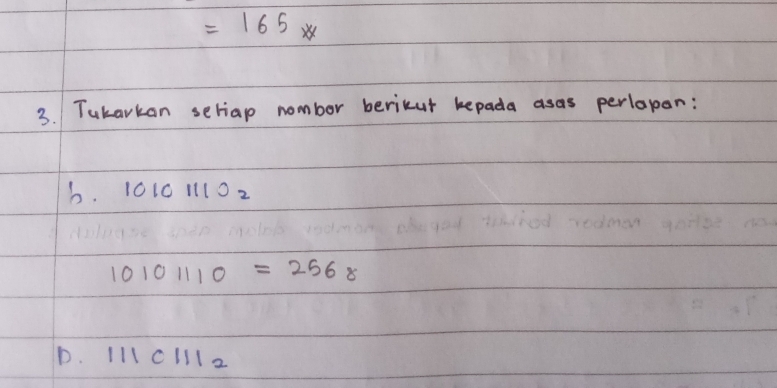 = 165
3. Tukarkan setiap nombor berikut kepada asas perlapan:
b. 10101110₂
10101110 = 256₈
D. 1110111₂